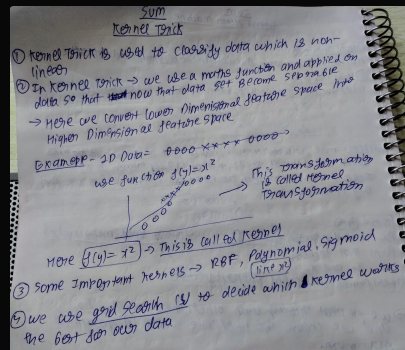 SVM
Kernel Trick
① Kernel Trick is used to classify data which is non-
linear
② In Kernel Trick → we use a maths function and applied on
data so that now that data set Become seprable
→ Here we convert Lower Dimensional feature space into
Higher Dimensional feature space
Example - 1D Data = 0000 xxxx 0000
use function f(y) = x²
→ This Transformation
is called Kernel
Transformation
Here f(y) = x² → This is called Kernel
③ Some Important kernels → RBF, Polynomial, Sigmoid
(like x²)
④ we use grid search CV to decide which kernel works
the best for our data